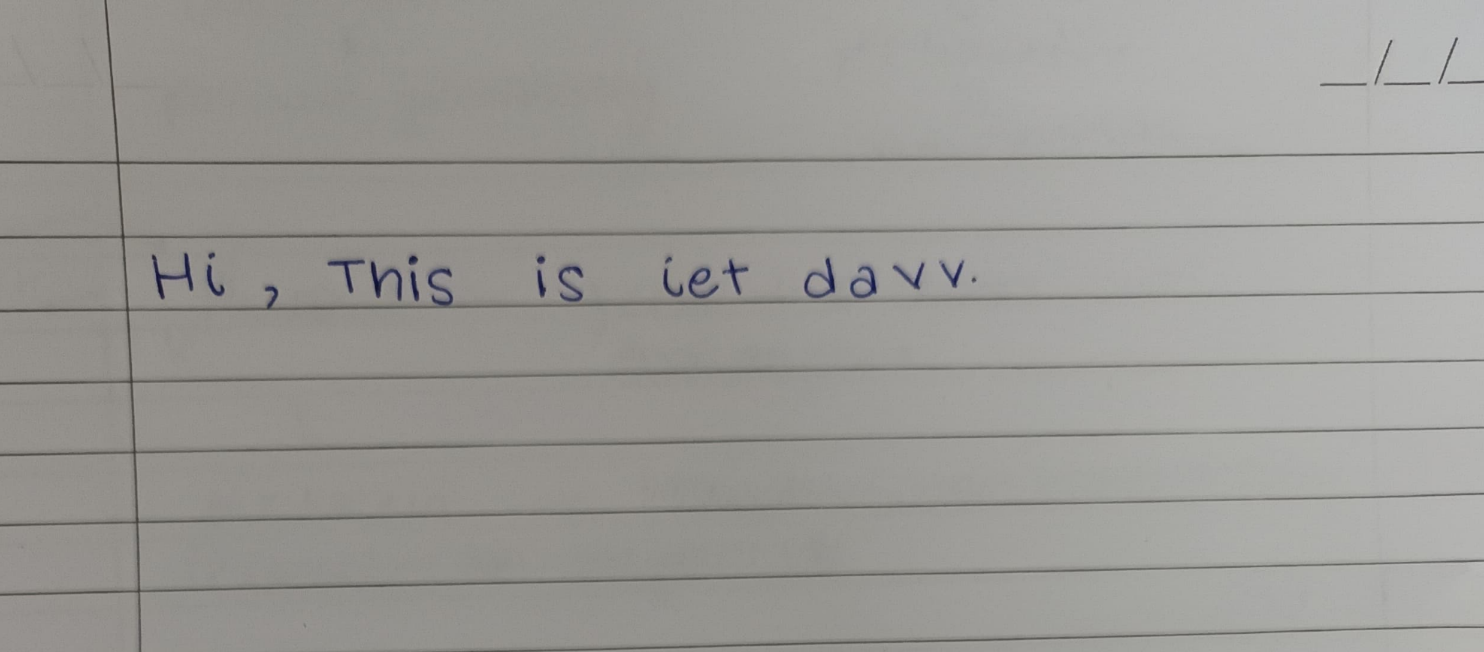 Hi, This is iet davv.